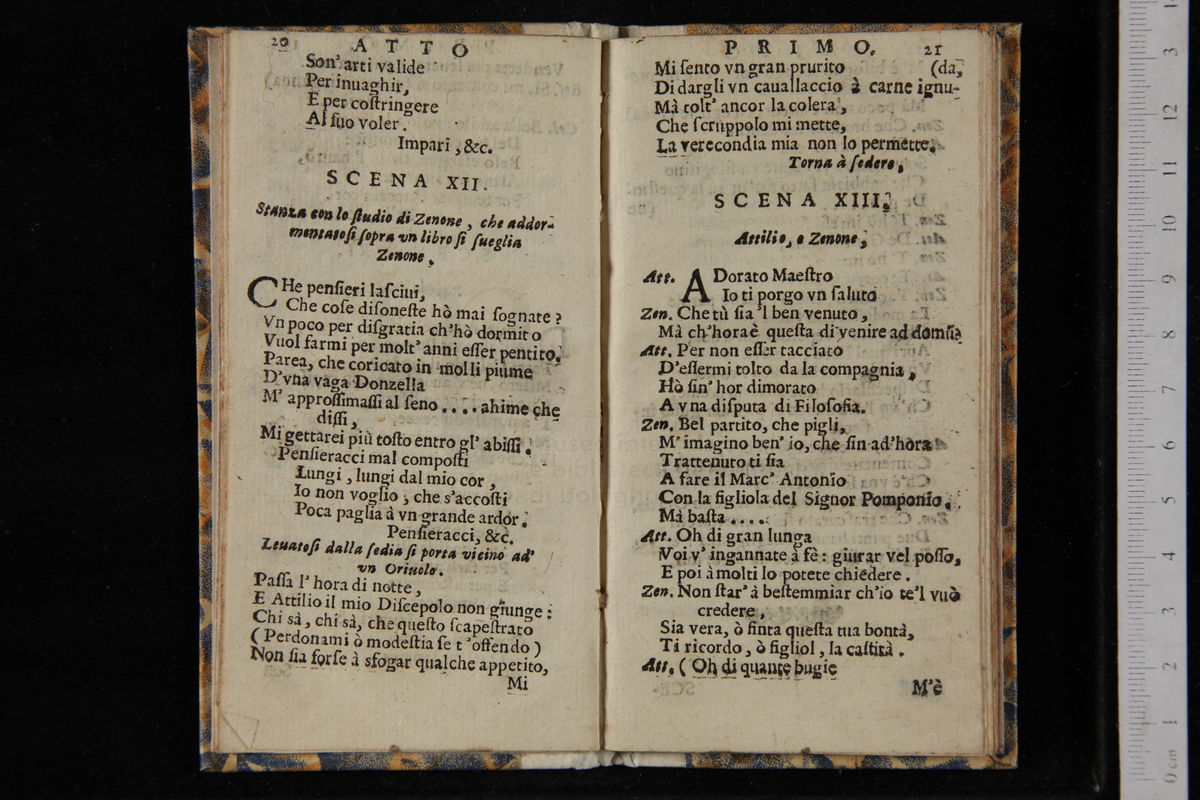 20 ATTO
Son' arti valide
Per inuaghir,
E per coſtringere
Al ſuo voler.
Impari, &c.
SCENA XII.
Stanza con lo ſtudio di Zenone, che addor-
mentatoſi ſopra vn libro ſi ſueglia
Zenone.
CHe penſieri laſciui,
Che coſe diſoneſte hò mai ſognate?
Vn poco per diſgratia ch'hò dormito
Vuol farmi per molt' anni eſſer pentito.
Parea, che coricato in molli piume
D'vna vaga Donzella
M' approſſimaſſi al ſeno .... ahime che
diſſi,
Mi gettarei più toſto entro gl' abiſſi.
Penſieracci mal compoſti
Lungi, lungi dal mio cor,
Io non voglio, che s'accoſti
Poca paglia à vn grande ardor.
Penſieracci, &c.
Leuatoſi dalla ſedia ſi porta vicino ad'
vn Oriuolo.
Paſſa l' hora di notte,
E Attilio il mio Diſcepolo non giunge:
Chi sà, chi sà, che queſto ſcapeſtrato
(Perdonami ò modeſtia ſe t'offendo)
Non ſia forſe à sfogar qualche appetito,
Mi
PRIMO. 21
Mi ſento vn gran prurito (da,
Di dargli vn cauallaccio à carne ignu-
Mà tolt' ancor la colera,
Che ſcruppolo mi mette,
La verecondia mia non lo permette.
Torna à ſedere,
SCENA XIII.
Attilio, e Zenone,
Att. ADorato Maeſtro
Io ti porgo vn ſaluto
Zen. Che tù ſia 'l ben venuto,
Mà ch'hora è queſta di venire ad domũ?
Att. Per non eſſer tacciato
D'eſſermi tolto da la compagnia,
Hò ſin' hor dimorato
A vna diſputa di Filoſofia.
Zen. Bel partito, che pigli,
M' imagino ben' io, che ſin ad'hora
Trattenuto ti ſia
A fare il Marc' Antonio
Con la figliola del Signor Pomponio.
Mà baſta ....
Att. Oh di gran lunga
Voi v' ingannate à fè: giurar vel poſſo,
E poi à molti lo potete chiedere.
Zen. Non ſtar' à beſtemmiar ch'io te'l vuò
credere,
Sia vera, ò finta queſta tua bontà,
Ti ricordo, ò figliol, la caſtità.
Att. (Oh di quante bugie
M'è